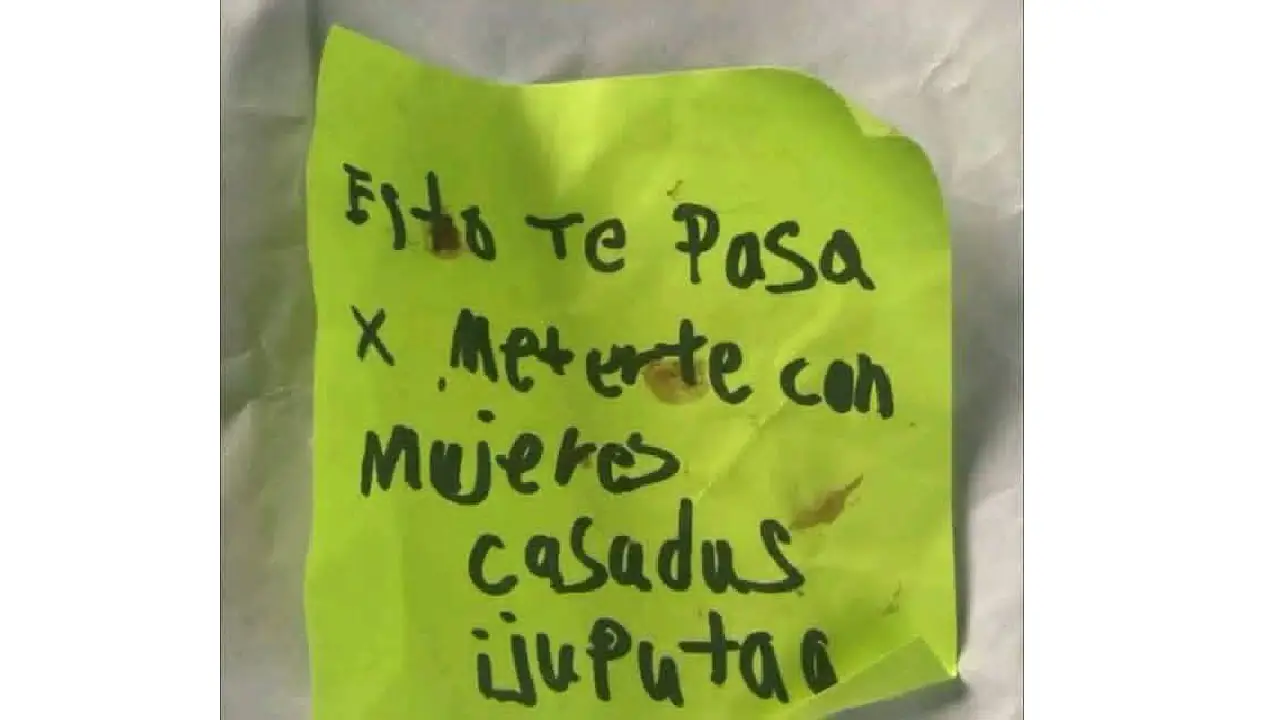 Esto Te Pasa
x Meterte con
Mujeres
casadas
ijuputaa